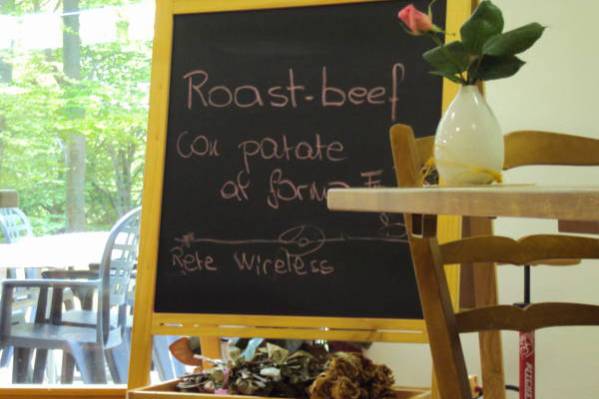 Roast-beef
con patate
al forno
Rete Wireless